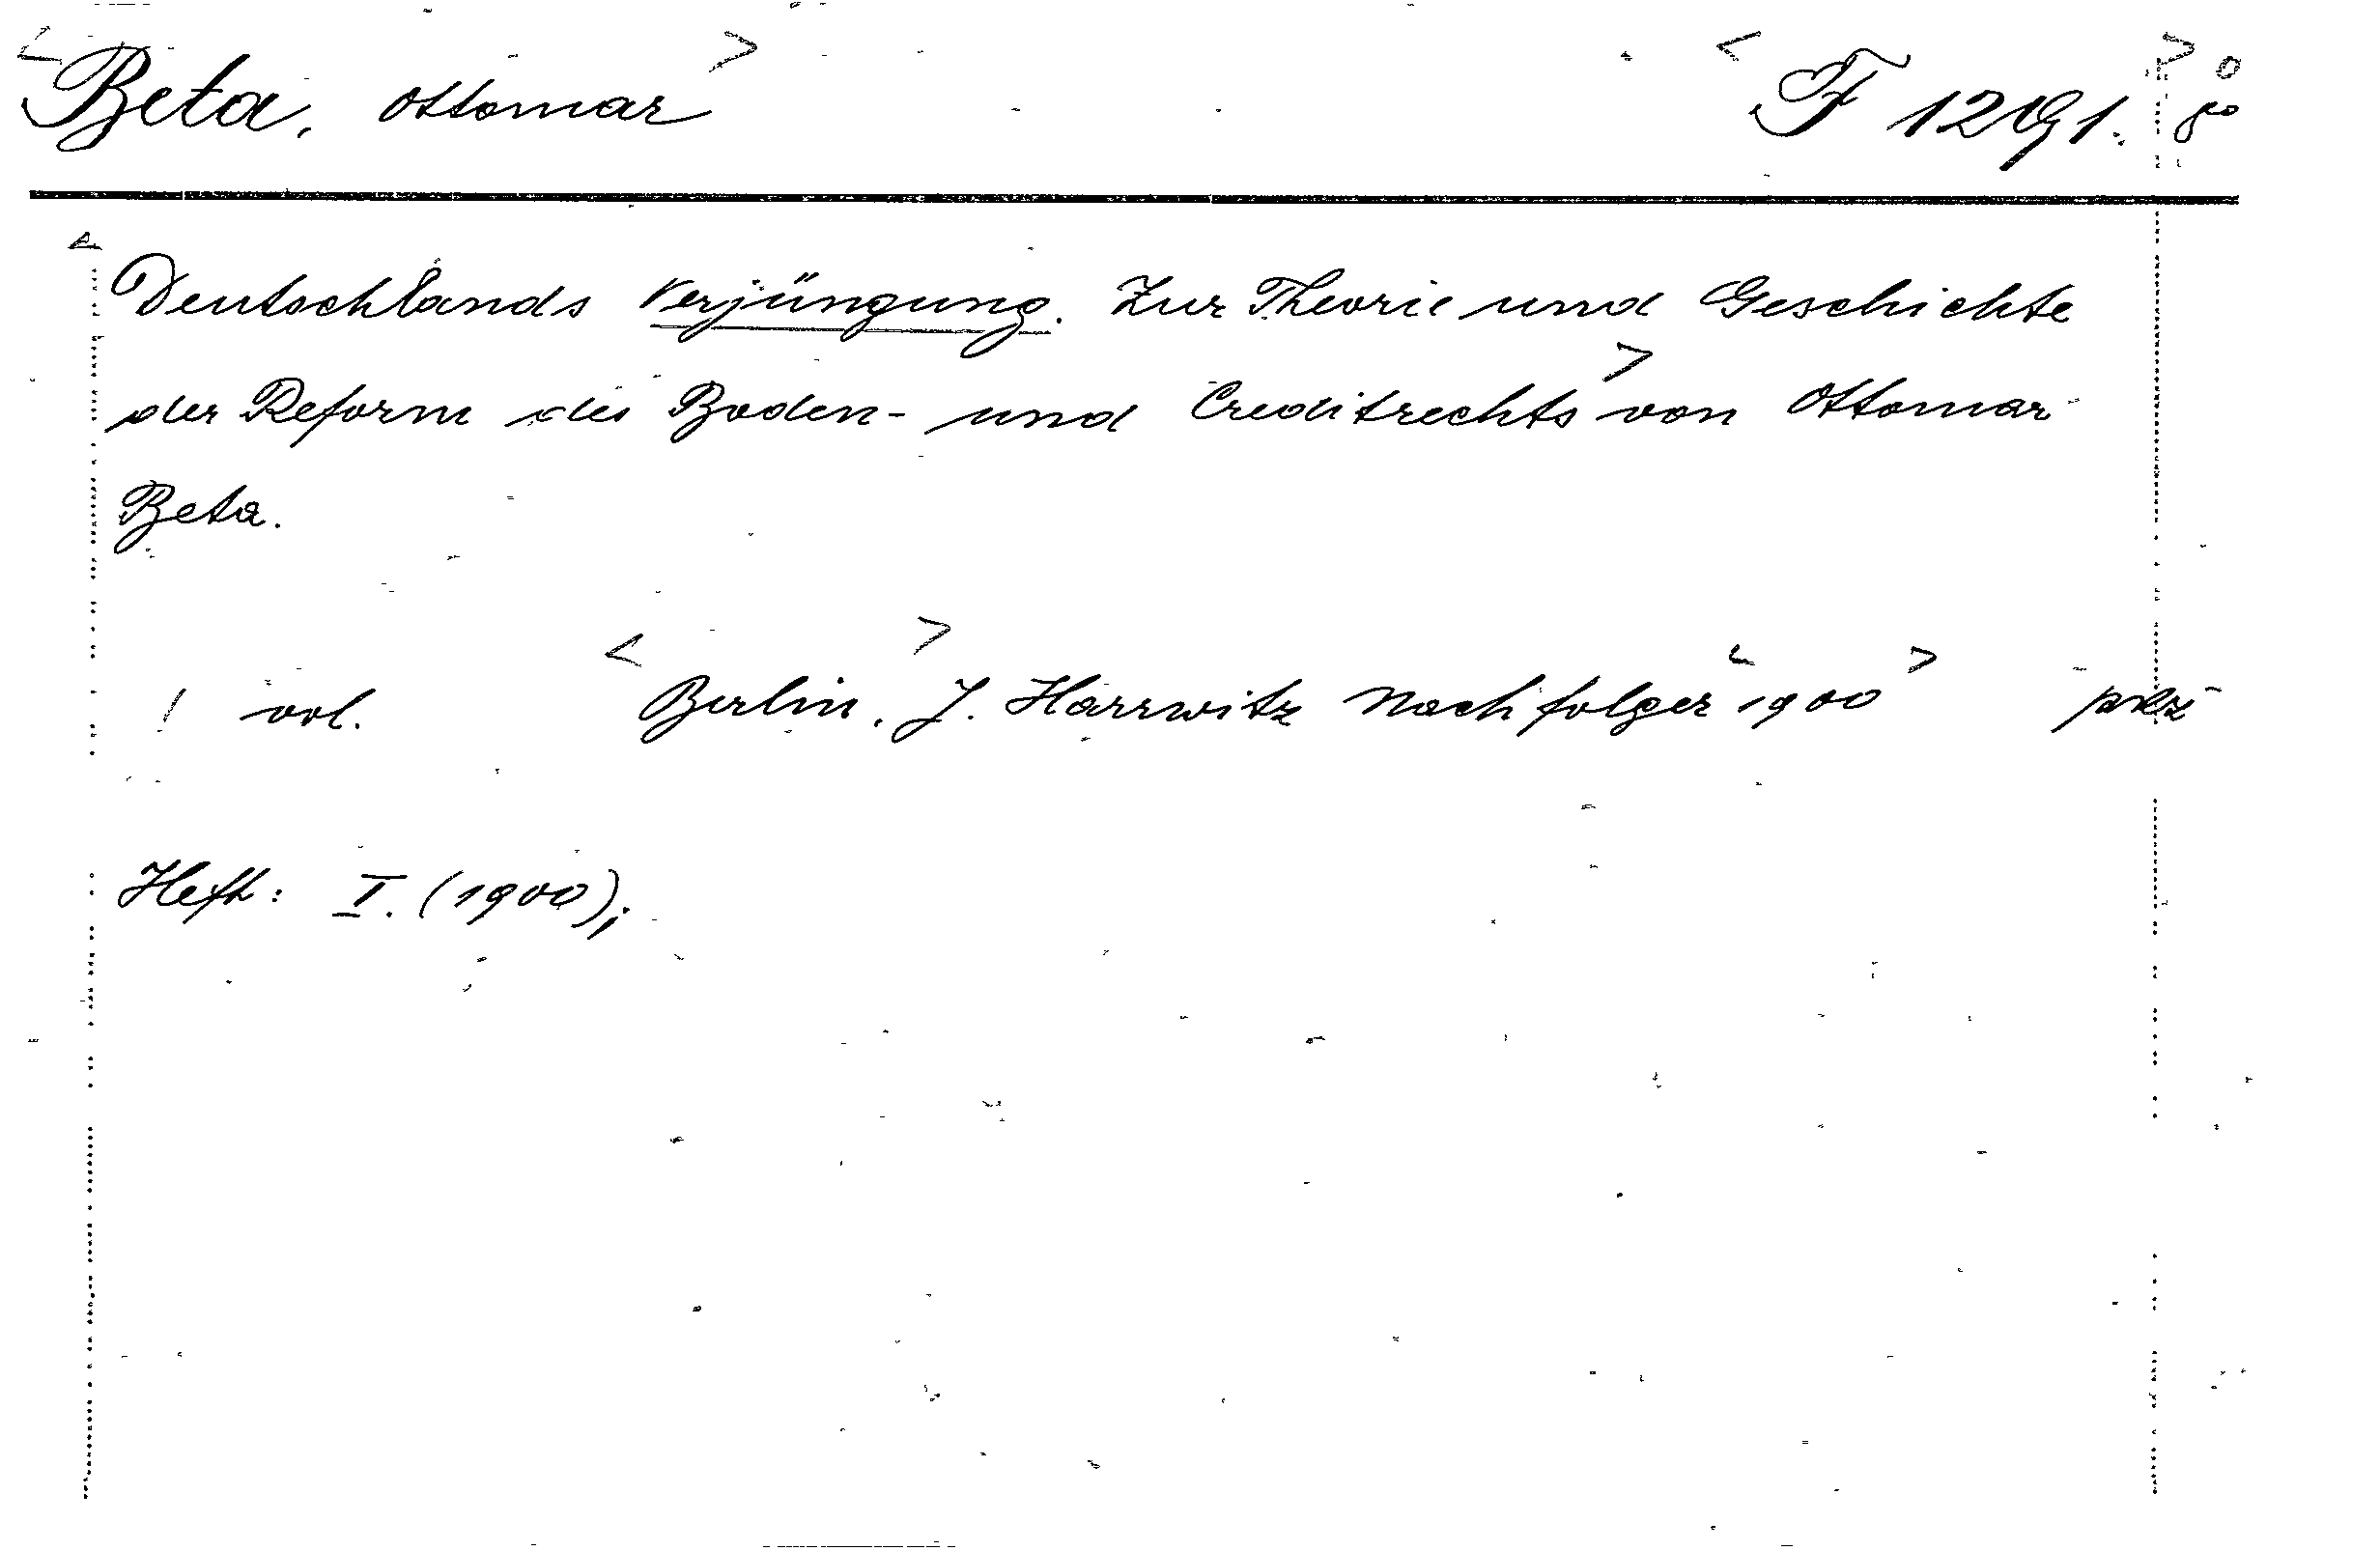 <Beta, Ottomar> <F 1291.> 8°
<Deutschlands Verjüngung. Zur Theorie und Geschichte
der Reform des Boden- und Creditrechts> von Ottomar
Beta.
1 vol. <Berlin>, J. Harrwitz Nachfolger <1900>
Heft: I. (1900);